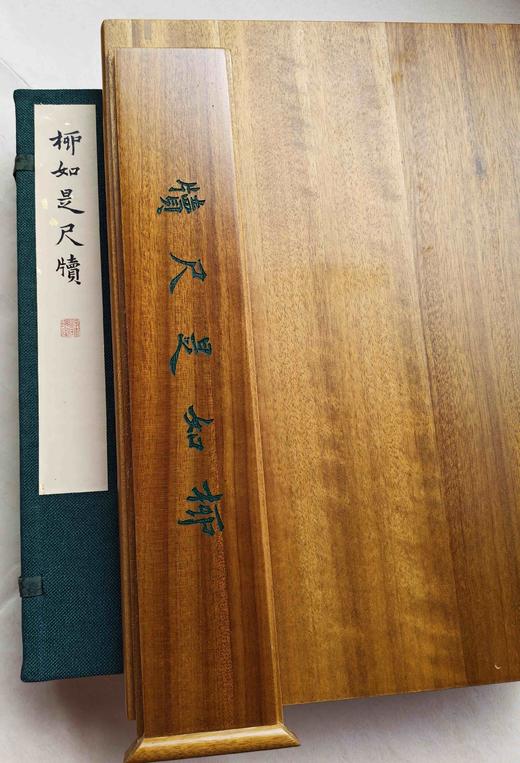 柳如是尺牘
柳如是尺牘